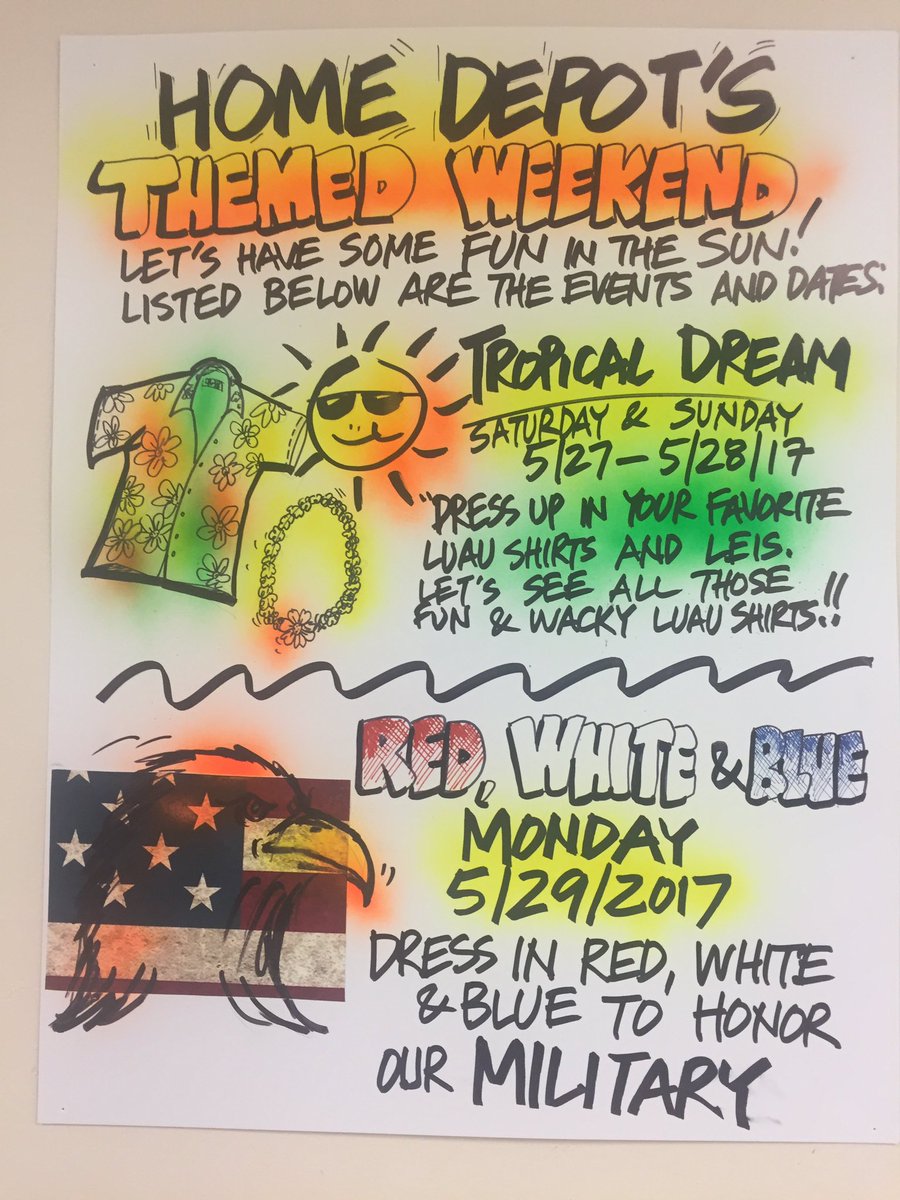 HOME DEPOT'S
THEMED WEEKEND
LET'S HAVE SOME FUN IN THE SUN!
LISTED BELOW ARE THE EVENTS AND DATES:
TROPICAL DREAM
SATURDAY & SUNDAY
5/27 - 5/28/17
"DRESS UP IN YOUR FAVORITE
LUAU SHIRTS AND LEIS.
LET'S SEE ALL THOSE
FUN & WACKY LUAU SHIRTS.!!
RED, WHITE & BLUE
MONDAY
5/29/2017
DRESS IN RED, WHITE
& BLUE TO HONOR
OUR MILITARY